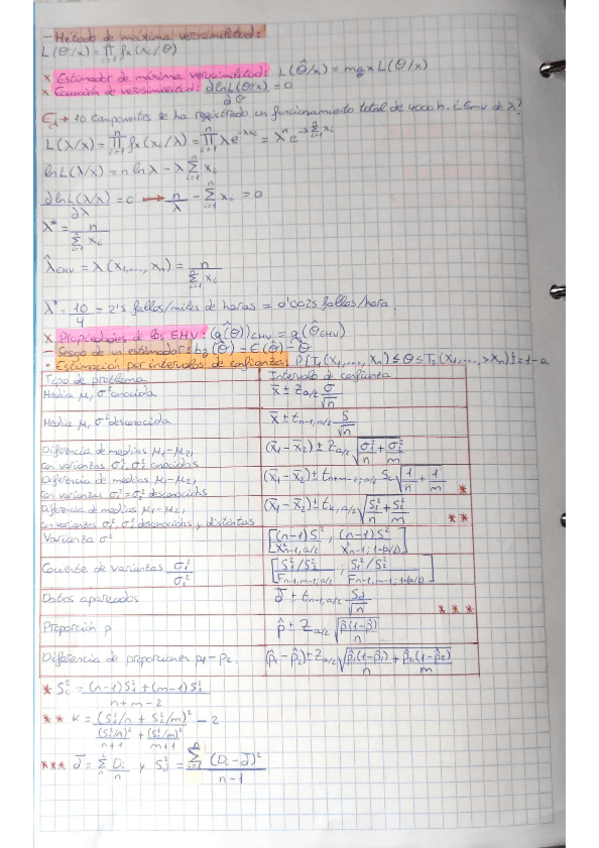 - Método de máxima verosimilitud:
L(θ/x) = ∏ᵢ₌₁ⁿ fx(xᵢ/θ)
x Estimador de máxima verosimilitud: L(θ̂/x) = max L(θ/x)
x Ecuación de verosimilitud: ∂lnL(θ/x)/∂θ = 0
Ej → 10 componentes se ha registrado un funcionamiento total de 4000 h. ¿Emv de λ?
L(λ/x) = ∏ᵢ₌₁ⁿ fx(xᵢ/λ) = ∏ᵢ₌₁ⁿ λe^(-λxᵢ) = λⁿ e^(-λ Σᵢ₌₁ⁿ xᵢ)
lnL(λ/x) = n lnλ - λ Σᵢ₌₁ⁿ xᵢ
∂lnL(λ/x)/∂λ = 0 → n/λ - Σᵢ₌₁ⁿ xᵢ = 0
λ* = n / Σᵢ₌₁ⁿ xᵢ
λ̂EMV = λ(x₁,..., xₙ) = n / Σᵢ₌₁ⁿ xᵢ
λ* = 10/4 = 2'5 fallos/miles de horas = 0'0025 fallos/hora.
x Propiedades de los EMV: (g(θ̂))EMV = g(θ̂EMV)
- Sesgo de un estimador: b_θ(θ̂) = E(θ̂) - θ
• Estimación por intervalos de confianza: P{T₁(x₁,..., xₙ) ≤ θ ≤ T₂(x₁,...,xₙ)} = 1-α
Tipo de problema Intervalo de confianza
Media μ, σ² conocida x̄ ± z_α/2 σ/√n
Media μ, σ² desconocida x̄ ± t_n-1, α/2 S/√n
Diferencia de medias μ₁-μ₂, (x̄₁ - x̄₂) ± z_α/2 √(σ₁²/n + σ₂²/m)
con varianzas σ₁², σ₂² conocidas
Diferencia de medias μ₁-μ₂, (x̄₁ - x̄₂) ± t_n+m-2, α/2 Sc √(1/n + 1/m) *
con varianzas σ₁² = σ₂² desconocidas
Diferencia de medias μ₁-μ₂, (x̄₁ - x̄₂) ± t_k, α/2 √(S₁²/n + S₂²/m) **
con varianzas σ₁², σ₂² desconocidas y distintas
Varianza σ² [(n-1)S²/χ²_n-1, α/2 ; (n-1)S²/χ²_n-1; 1-(α/2)]
Cociente de varianzas σ₁²/σ₂² [S₁²/S₂² / F_n-1, m-1; α/2 ; S₁²/S₂² / F_n-1, m-1; 1-(α/2)]
Datos apareados d̄ ± t_n-1, α/2 Sd/√n ***
Proporción p p̂ ± z_α/2 √(p̂(1-p̂)/n)
Diferencia de proporciones p₁-p₂. (p̂₁ - p̂₂) ± z_α/2 √(p̂₁(1-p̂₁)/n + p̂₂(1-p̂₂)/m)
* Sc² = ((n-1)S₁² + (m-1)S₂²) / (n+m-2)
** K = (S₁²/n + S₂²/m)² / ((S₁²/n)²/(n+1) + (S₂²/m)²/(m+1)) - 2
*** d̄ = Σ Dᵢ/n y Sd² = Σᵢ₌₁ⁿ (Dᵢ - d̄)² / (n-1)